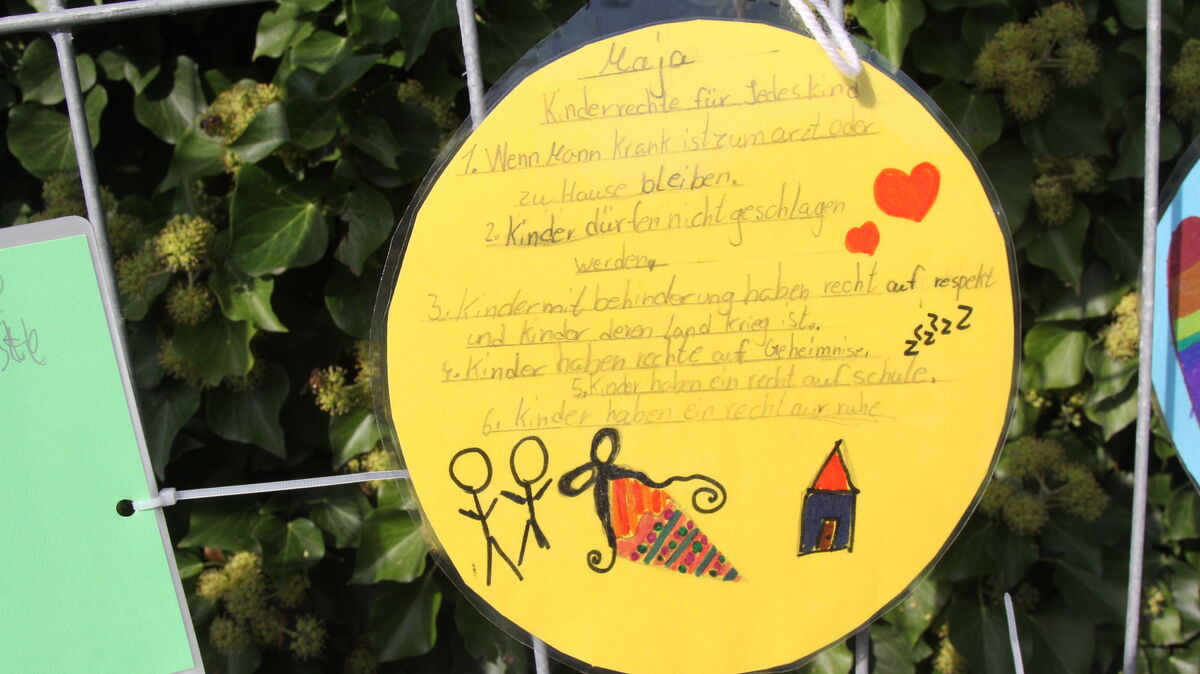 Maja
Kinderrechte für Jedes Kind
1. Wenn Mann krank ist zum arzt oder
zu Hause bleiben.
2. Kinder dürfen nicht geschlagen
werden.
3. Kinder mit behinderung haben recht auf respekt
und kinder deren land krieg ist.
4. Kinder haben rechte auf Geheimnise.
5. Kinder haben ein recht auf schule.
6. Kinder haben ein recht auf ruhe
zzzzZ